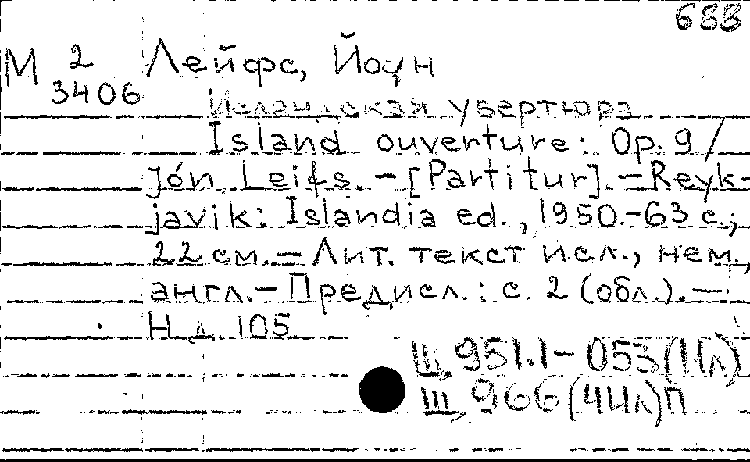 688
М 2 Лейфс, Йоун
3406
Исландская увертюра
Island ouverture: Op. 9 /
Jón Leifs. – [Partitur]. – Reyk-
javik: Islandia ed., 1950.-63 с.;
22 см. – Лит. текст исл., нем.,
англ. – Предисл.: с. 2 (обл.). –
Н. д. 105
Ш 951.1-053(1Ил)
Ш 966(4Ил)П